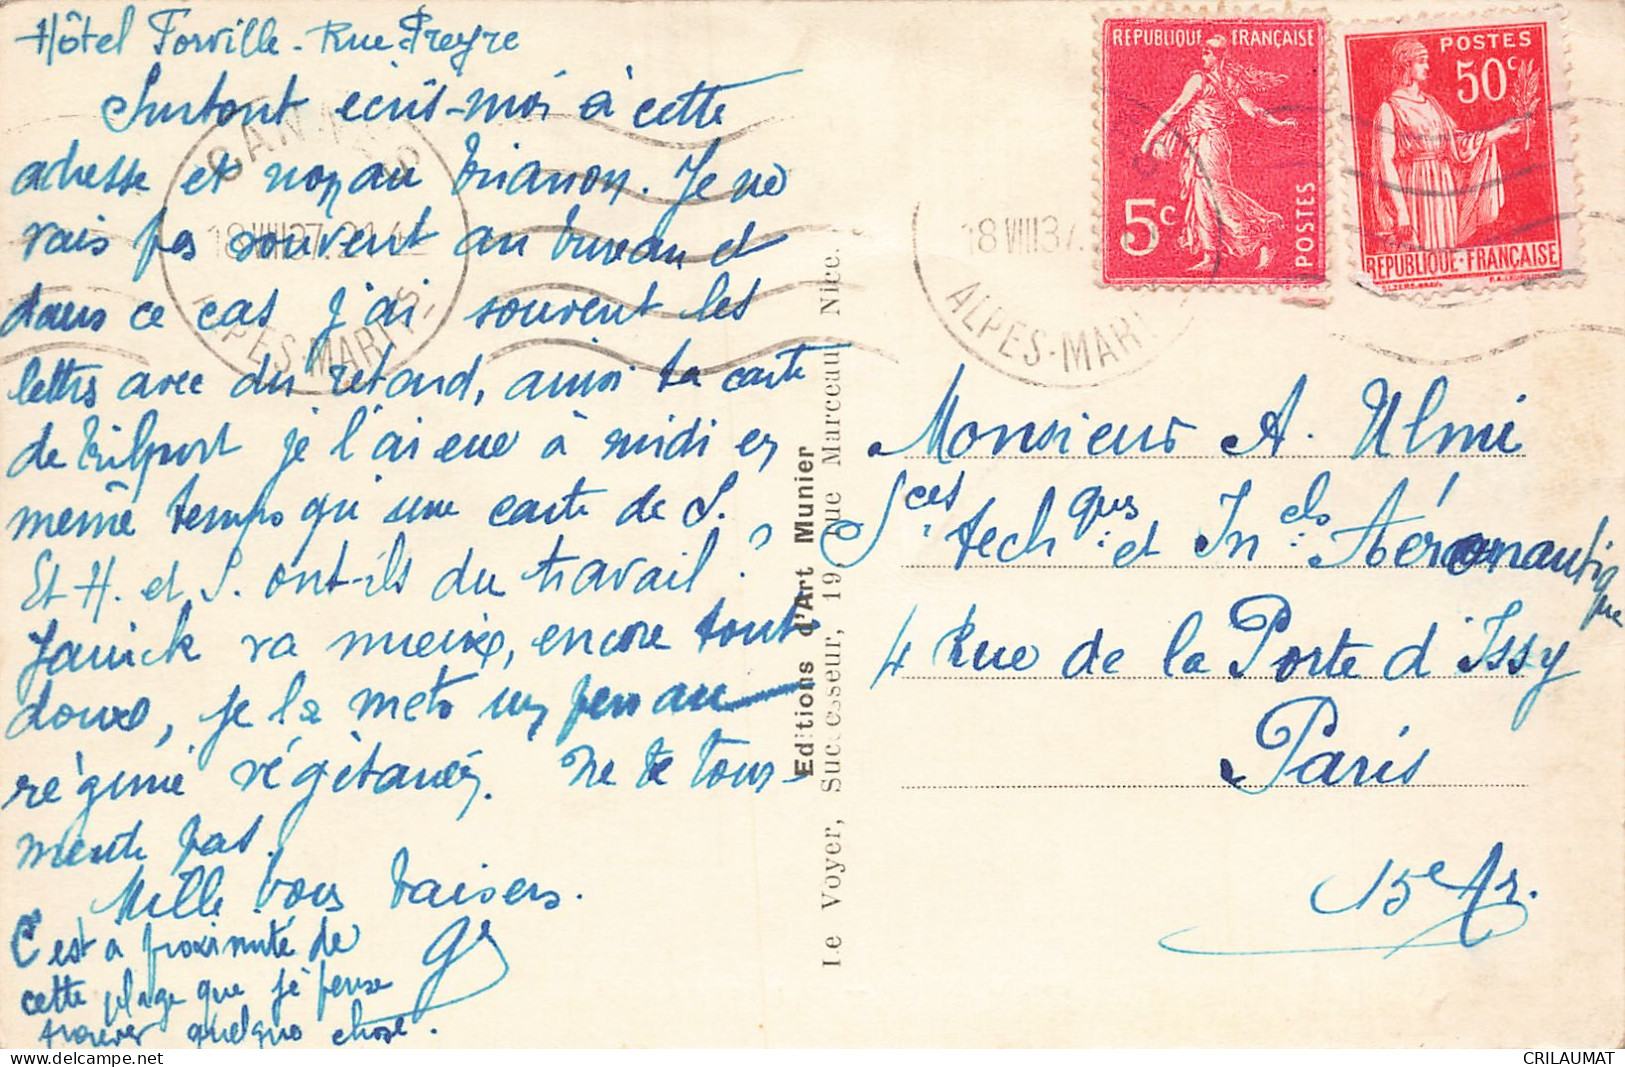 Hôtel Forville - Rue Preyre
Surtout écris-moi à cette
adresse et non au Trianon. Je ne
vais pas souvent au bureau et
dans ce cas j'ai souvent les
lettres avec du retard, ainsi ta carte
de Trilport je l'ai eue à midi en
même temps qu'une carte de S.
Et H. et S. ont-ils du travail ?
Janick va mieux, encore toute
douce, je la mets un peu au
régime végétarien. Ne te tour-
mente pas.
Mille bons baisers.
C'est à proximité de
cette plage que je pense
trouver quelque chose.
CANNES
18 VIII 37
ALPES-MARITS.
Editions d'Art Munier
Le Voyer, Successeur, 19 Rue Marceau, Nice.
18 VIII 37
ALPES-MARI
REPUBLIQUE FRANÇAISE
5c
POSTES
POSTES
50c
REPUBLIQUE·FRANÇAISE
Monsieur A. Ulmi
Sces techques et Incls Aéronautique
4 Rue de la Porte d'Issy
Paris
15e Ar.
CRILAUMAT